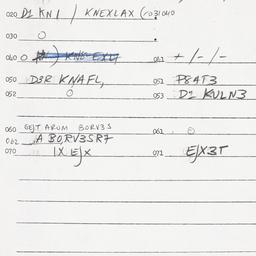 020 D1 KN1 / KNEXLAX (
030 O
040 O 041 + /-/-
050 D3R KNAFL, 051 P8AT3
052 O 053 D1 KULN3
060 GEJT ARUM BORV3S 061 O
062 A BORV3SR7
070 IX EJX 071 EJX3T